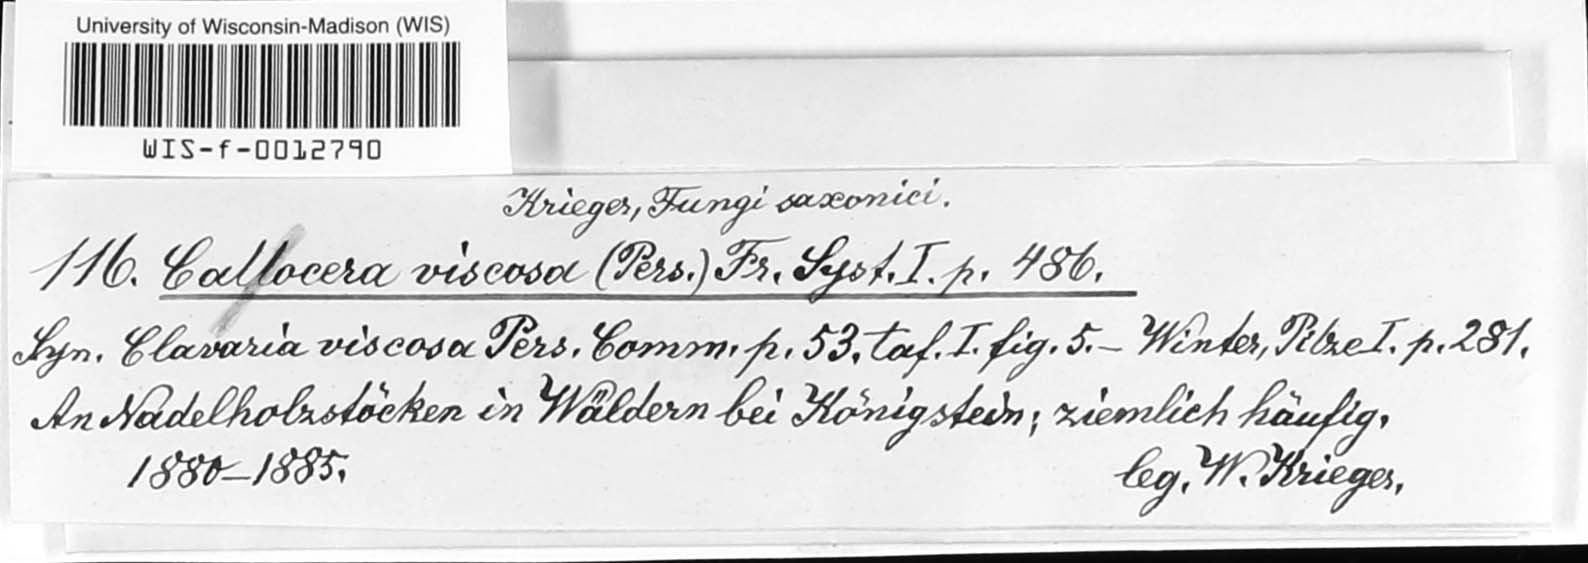 University of Wisconsin-Madison (WIS)
WIS-f-0012790
Krieger, Fungi saxonici.
116. Callocera viscosa (Pers.) Fr. Syst. I. p. 486.
Syn. Clavaria viscosa Pers. Comm. p. 53. taf. I. fig. 5. – Winter, Pilze I. p. 281.
An Nadelholzstöcken in Wäldern bei Königstein; ziemlich häufig.
1880–1885.
leg. W. Krieger.